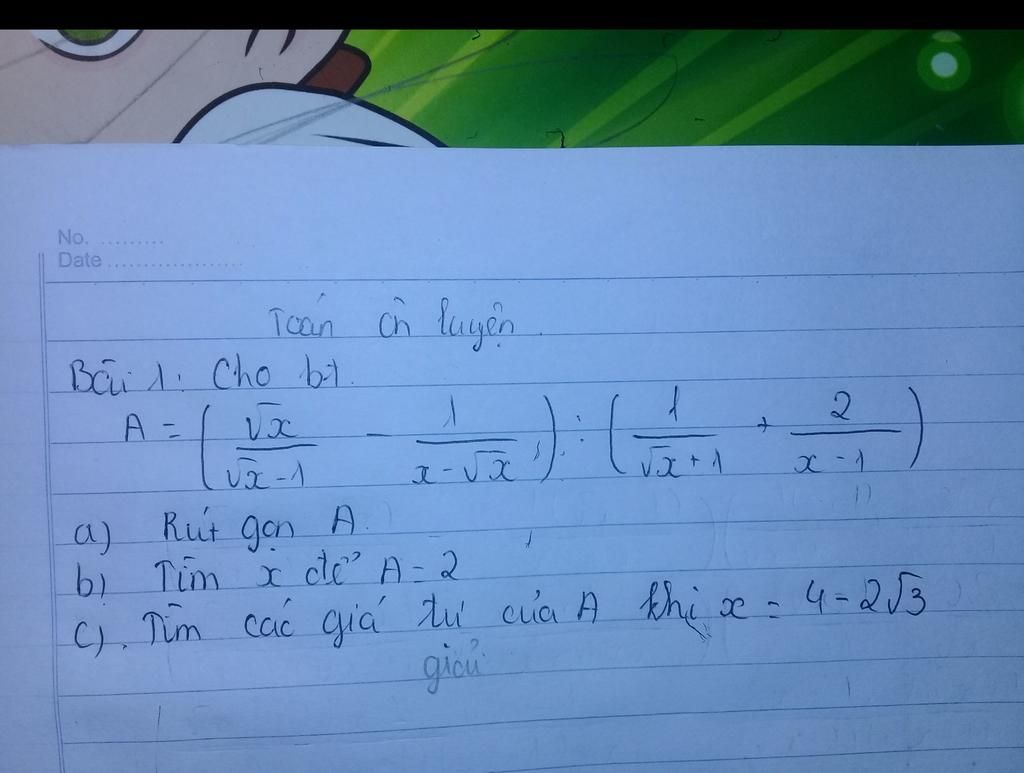 No. ..........
Date ...................
Toán ôn luyện.
Bài 1: Cho bt.
A = ( √x / (√x - 1) - 1 / (x - √x) ) : ( 1 / (√x + 1) + 2 / (x - 1) )
a) Rút gọn A.
b) Tìm x để A = 2
c). Tìm các giá trị của A khi x = 4 - 2√3
giải